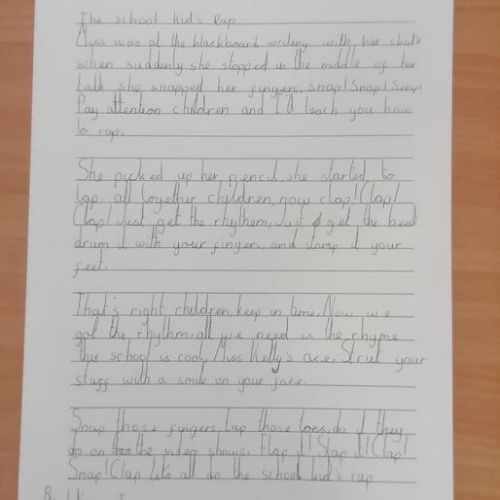 The school kid's Rap
Miss was at the blackboard writing with her chalk
when suddenly she stopped in the middle of her
talk she snapped her fingers, snap! Snap! Snap!
Pay attention children and I'll teach you how
to rap.
She picked up her pencil, she started to
tap all together children, now clap! Clap!
Clap! Just get the rhythem, Just get the beat
drum it with your fingers, and stamp it your
feet.
That's right children, keep in time, Now we
got the rhythm, all we need is the rhyme
this school is cool, Miss Kelly's ace, Strut your
stuff with a smile on your face.
Snap those fingers, tap those toes, do it they
do on the video shows. Flap it! Slap it! Clap!
Snap! Clap let's all do the school kid's rap